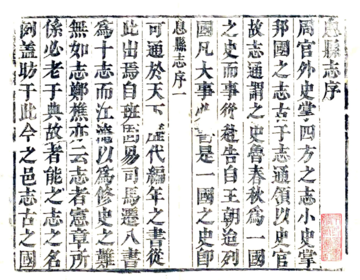 息縣志序
周官外史掌四方之志小史掌
邦國之志古于志通領以史官
故志通謂之史魯春秋為一國
之史而事赴告自王朝迨列
息縣志序一
國凡大事書是一國之史即
可通於天下歷代編年之書從
此出焉自班固易司馬遷八書
為十志而江淹以為修史之難
無如志鄭樵亦云志者憲章所
係必老于典故者能之志之名
盖昉于此今之邑志古之國